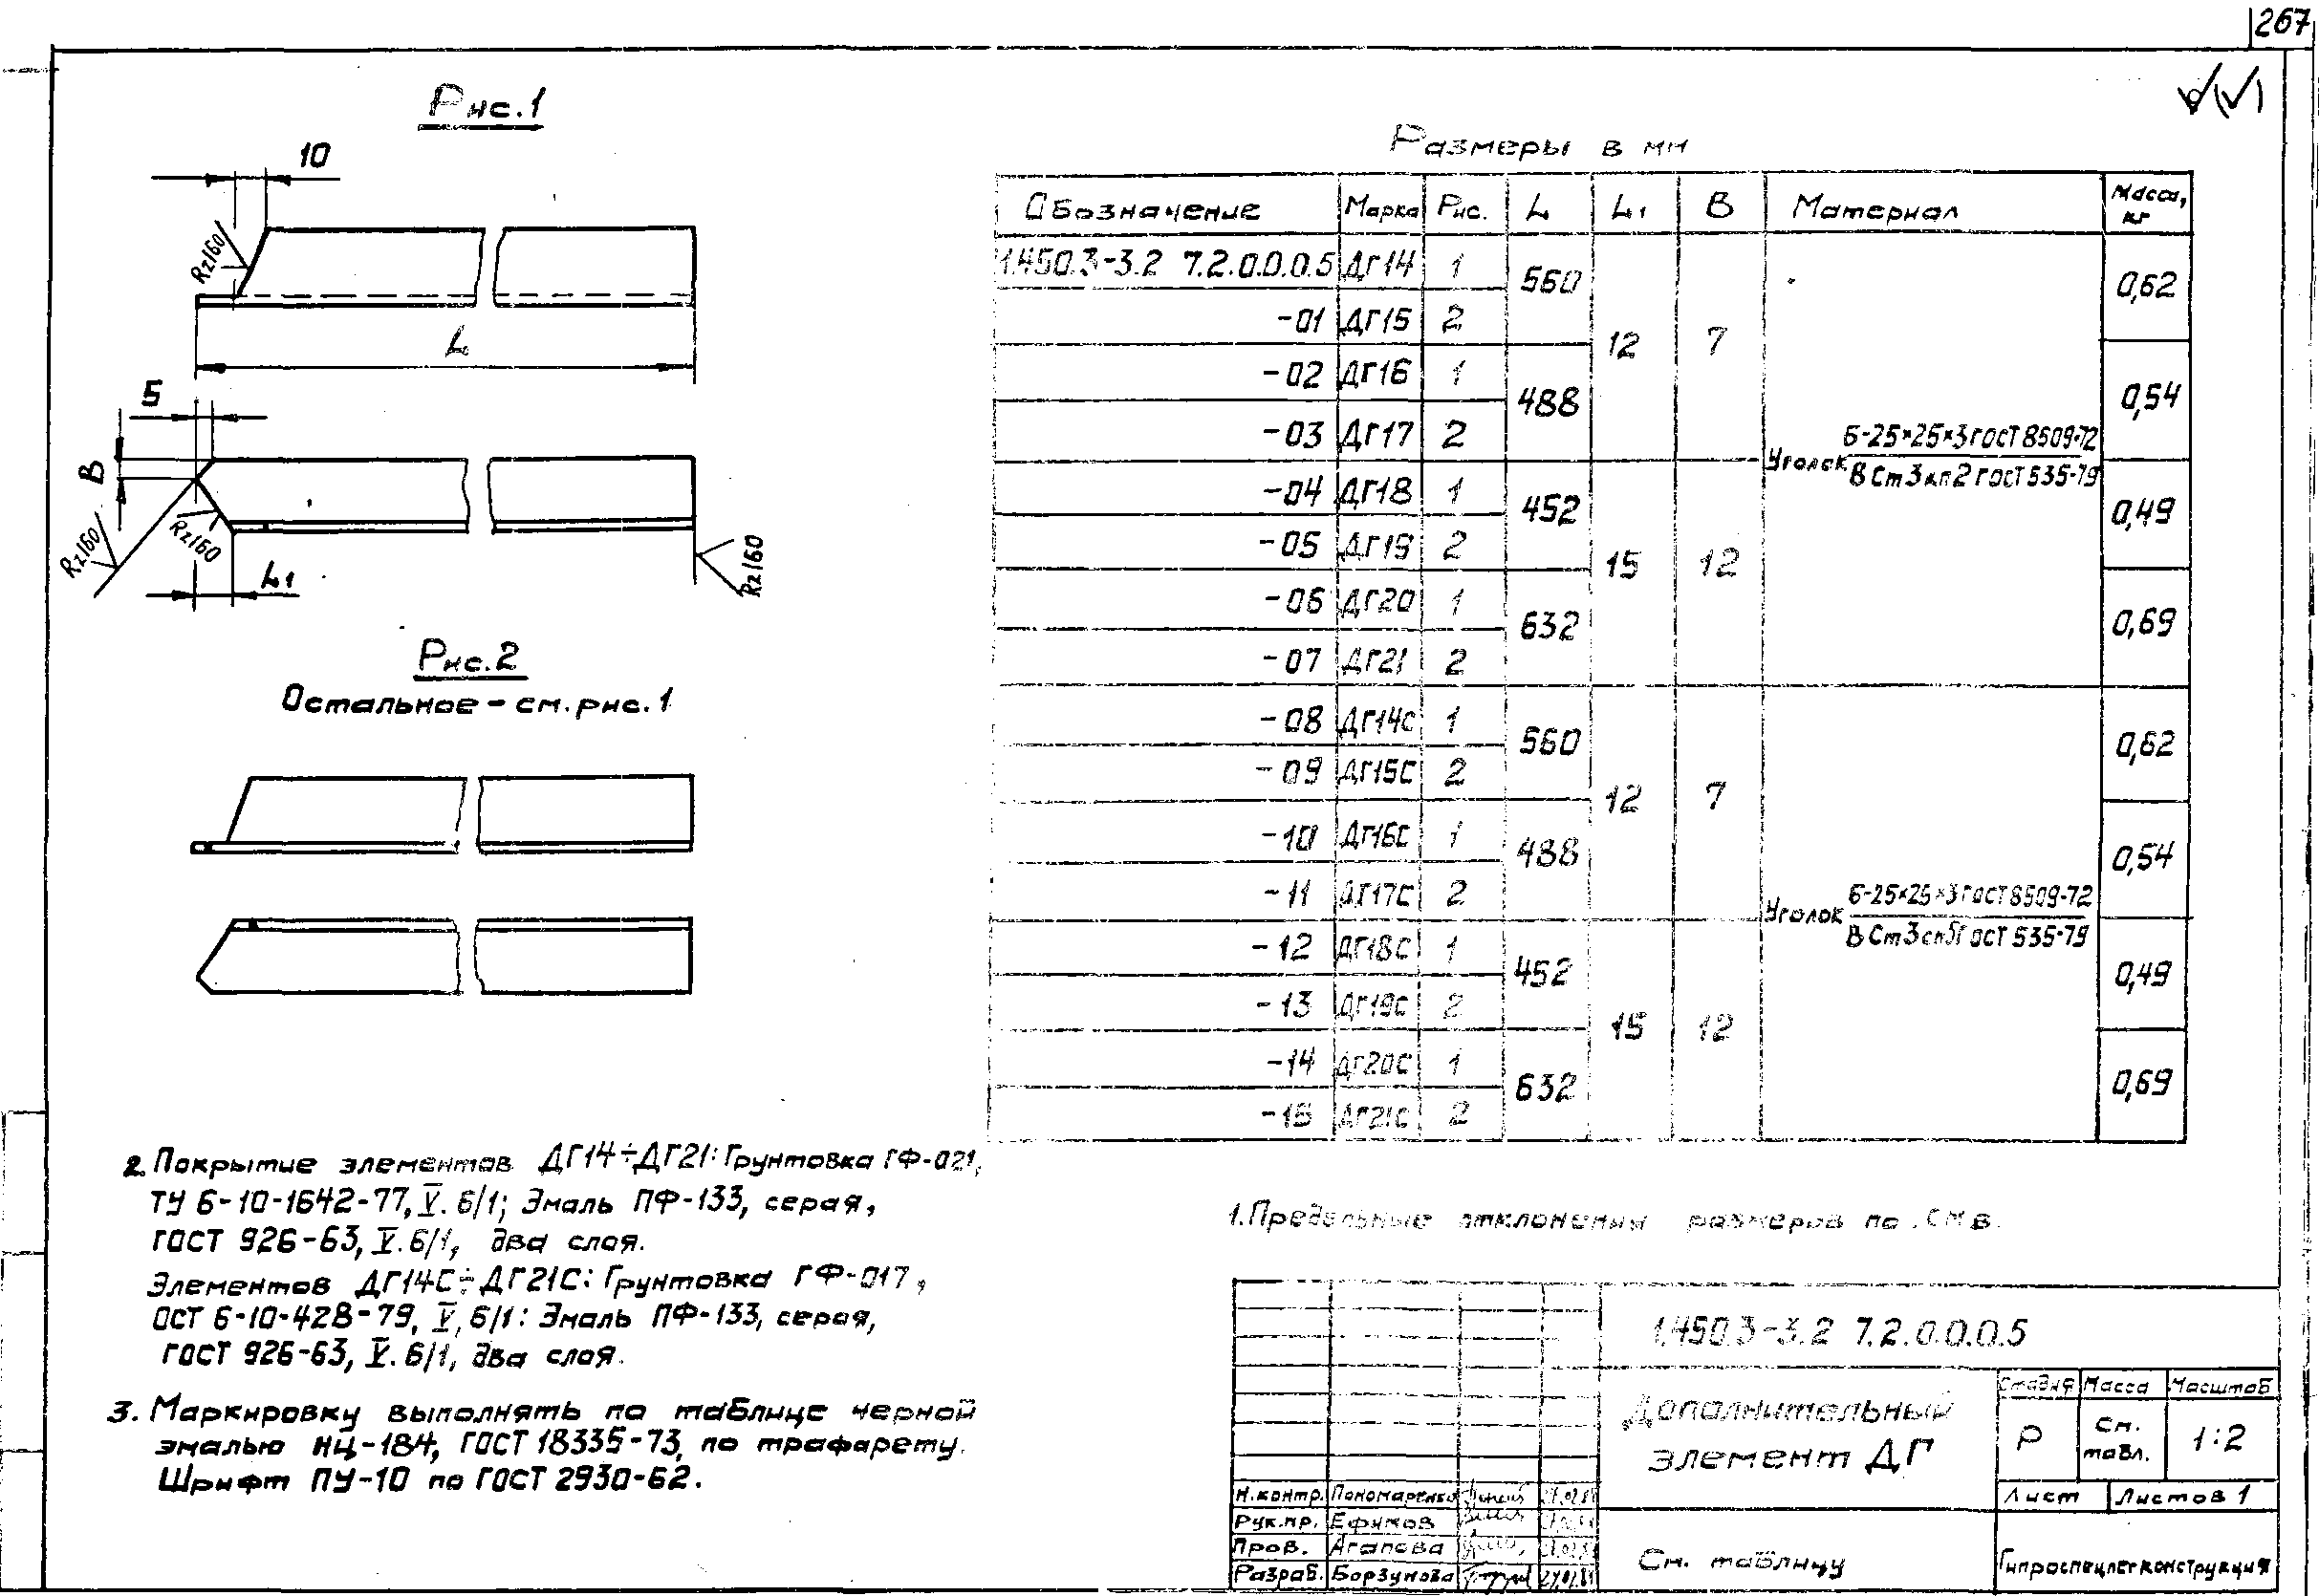 267
Рис.1
10
Rz160
L
5
B
Rz160
Rz160
L1
Rz160
Рис.2
Остальное – см. рис. 1
Размеры в мм
Обозначение Марка Рис. L L1 B Материал Масса, кг
1.450.3-3.2 7.2.0.0.0.5 ДГ14 1 560 12 7 0,62
-01 ДГ15 2
-02 ДГ16 1 488 0,54
-03 ДГ17 2
Уголок Б-25×25×3 ГОСТ 8509-72
В Ст3кп2 ГОСТ 535-79
-04 ДГ18 1 452 15 12 0,49
-05 ДГ19 2
-06 ДГ20 1 632 0,69
-07 ДГ21 2
-08 ДГ14С 1 560 12 7 0,62
-09 ДГ15С 2
-10 ДГ16С 1 488 0,54
-11 ДГ17С 2
Уголок Б-25×25×3 ГОСТ 8509-72
В Ст3сп5 ГОСТ 535-79
-12 ДГ18С 1 452 15 12 0,49
-13 ДГ19С 2
-14 ДГ20С 1 632 0,69
-15 ДГ21С 2
1. Предельные отклонения размеров по
2. Покрытие элементов ДГ14÷ДГ21: Грунтовка ГФ-021,
ТУ 6-10-1642-77, V. 6/1; Эмаль ПФ-133, серая,
ГОСТ 926-63, V. 6/1, два слоя.
Элементов ДГ14С÷ДГ21С: Грунтовка ГФ-017,
ОСТ 6-10-428-79, V, 6/1: Эмаль ПФ-133, серая,
ГОСТ 926-63, V. 6/1, два слоя.
3. Маркировку выполнять по таблице черной
эмалью НЦ-184, ГОСТ 18335-73, по трафарету.
Шрифт ПУ-10 по ГОСТ 2930-62.
1.450.3-3.2 7.2.0.0.0.5
Дополнительный
элемент ДГ
Стадия Масса Масштаб
Р См. табл. 1:2
Лист Листов 1
Н.контр. Пономаренко
Рук.пр. Ефимов
Пров. Агапова
Разраб. Борзунова
См. таблицу
Гипроспецлегконструкция